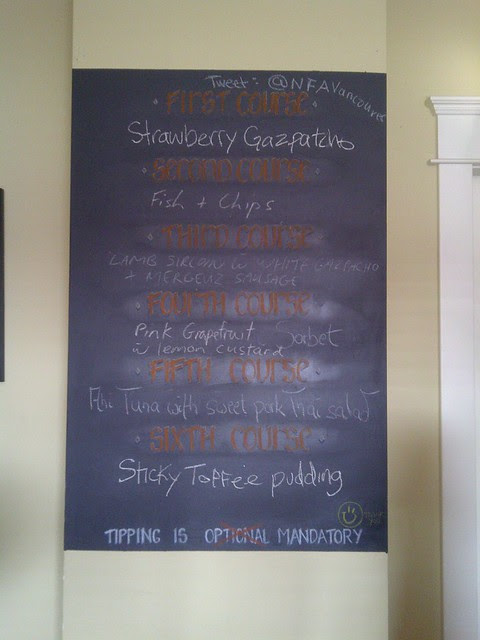 Tweet: @NFAVancouver
FIRST COURSE
Strawberry Gazpatcho
SECOND COURSE
Fish + Chips
THIRD COURSE
LAMB SIRLOIN w WHITE GAZPACHO
+ MERGEUZ SAUSAGE
FOURTH COURSE
Pink Grapefruit Sorbet
w lemon custard
FIFTH COURSE
Ahi Tuna with sweet pork Thai salad
SIXTH COURSE
Sticky Toffee pudding
TIPPING IS OPTIONAL MANDATORY